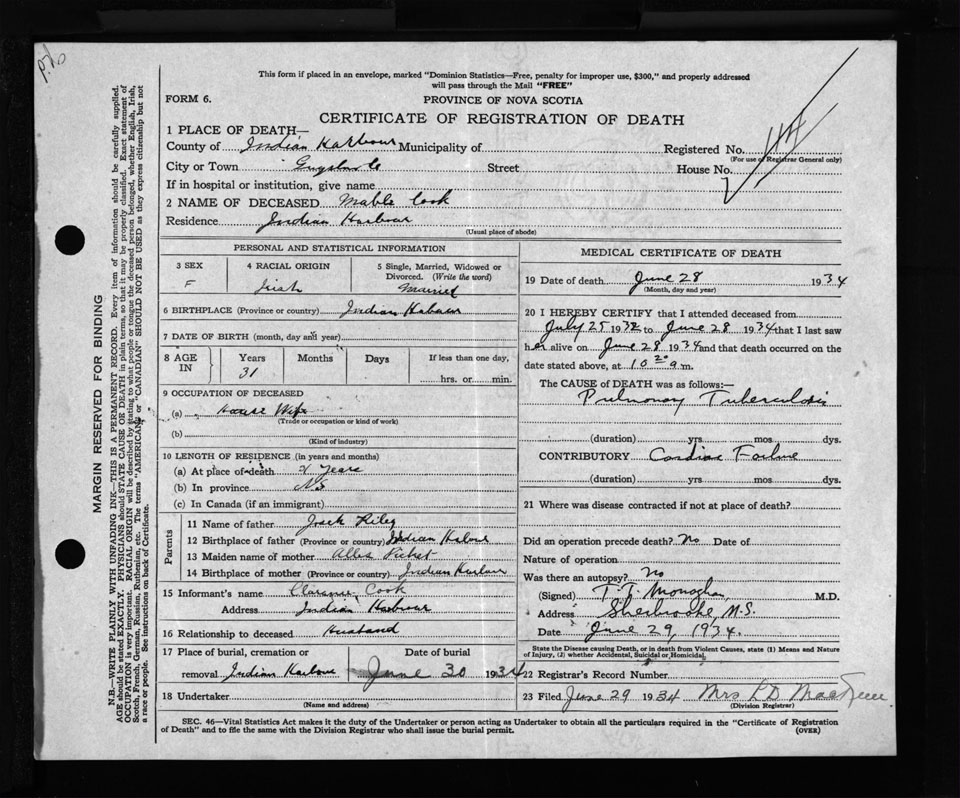 This form if placed in an envelope, marked "Dominion Statistics—Free, penalty for improper use, $300," and properly addressed
will pass through the Mail "FREE"
FORM 6.
PROVINCE OF NOVA SCOTIA
CERTIFICATE OF REGISTRATION OF DEATH
1 PLACE OF DEATH—
County of Indian Harbour Municipality of Registered No. 44
(For use of Registrar General only)
City or Town Street House No.
If in hospital or institution, give name
2 NAME OF DECEASED Mable Cook
Residence Indian Harbour
(Usual place of abode)
PERSONAL AND STATISTICAL INFORMATION
3 SEX 4 RACIAL ORIGIN 5 Single, Married, Widowed or
Divorced. (Write the word)
F Irish Married
6 BIRTHPLACE (Province or country) Indian Habour
7 DATE OF BIRTH (month, day and year)
8 AGE IN Years Months Days If less than one day,
31 hrs. or min.
9 OCCUPATION OF DECEASED
(a) House Wife
(Trade or occupation or kind of work)
(b)
(Kind of industry)
10 LENGTH OF RESIDENCE (in years and months)
(a) At place of death Years
(b) In province NS
(c) In Canada (if an immigrant)
Parents
11 Name of father Jack Riley
12 Birthplace of father (Province or country) Indian Habour
13 Maiden name of mother
14 Birthplace of mother (Province or country) Indian Harbour
15 Informant's name Clarence Cook
Address Indian Harbour
16 Relationship to deceased Husband
17 Place of burial, cremation or Date of burial
removal Indian Harbour June 30 1934
18 Undertaker
(Name and address)
MEDICAL CERTIFICATE OF DEATH
19 Date of death June 28 1934
(Month, day and year)
20 I HEREBY CERTIFY that I attended deceased from
July 25 1932 to June 28 1934 that I last saw
her alive on June 28 1934 and that death occurred on the
date stated above, at 10 20 a.m.
The CAUSE of DEATH was as follows:—
Pulmonary Tuberculosis
(duration) yrs mos dys.
CONTRIBUTORY Cardiac Failure
(duration) yrs mos dys.
21 Where was disease contracted if not at place of death?
Did an operation precede death? No Date of
Nature of operation
Was there an autopsy? No
(Signed) T. T. Monaghan M.D.
Address Sherbrooke, N.S.
Date June 29, 1934.
State the Disease causing Death, or in death from Violent Causes, state (1) Means and Nature
of Injury, (2) whether Accidental, Suicidal or Homicidal.
22 Registrar's Record Number
23 Filed June 29 1934 Mrs
(Division Registrar)
SEC. 46—Vital Statistics Act makes it the duty of the Undertaker or person acting as Undertaker to obtain all the particulars required in the "Certificate of Registration
of Death" and to file the same with the Division Registrar who shall issue the burial permit. (OVER)
MARGIN RESERVED FOR BINDING
N.B.—WRITE PLAINLY WITH UNFADING INK—THIS IS A PERMANENT RECORD. Every item of information should be carefully supplied.
AGE should be stated EXACTLY. PHYSICIANS should STATE CAUSE OF DEATH in plain terms, so that it may be properly classified. Exact statement of
OCCUPATION is very important. RACIAL ORIGIN will be described by stating to what people or tongue the deceased person belonged, whether English, Irish,
Scotch, French, German, Russian, Ruthenian, etc. The terms "AMERICAN" or "CANADIAN" SHOULD NOT BE USED as they express citizenship but not
a race or people. See instructions on back of Certificate.